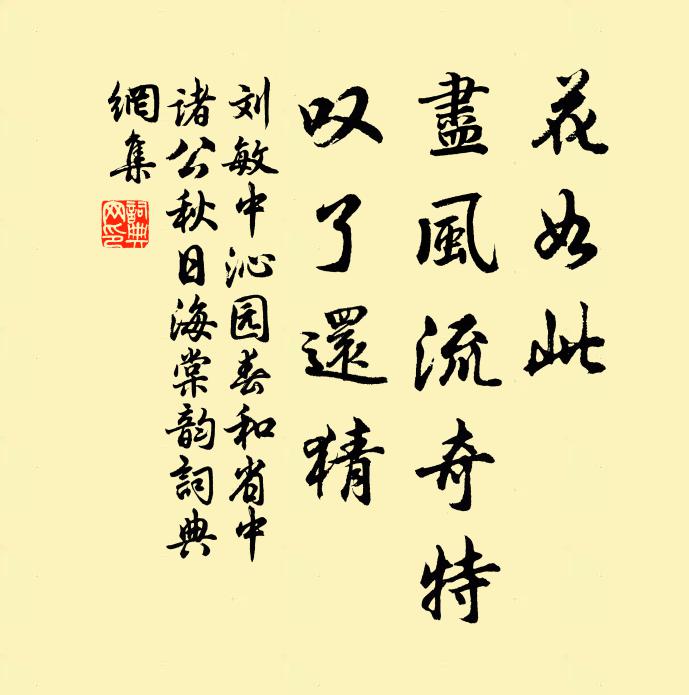 花如此
盡風流奇特
叹了還猜
刘敏中沁园春和省中
诸公秋日海棠韵詞典
網集
詞典
网印